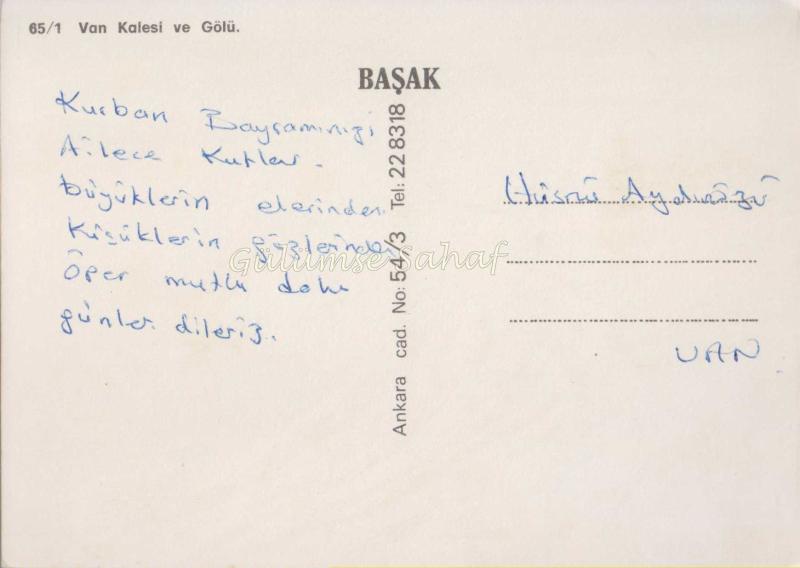 65/1 Van Kalesi ve Gölü.
BAŞAK
Ankara cad. No: 54/3 Tel: 22 83 18
Kurban Bayramınızı
Ailece Kutlar.
büyüklerin elerinden
Küçüklerin gözlerinden
Öper mutlu dolu
günler dileriz.
Gülümse Sahaf
Hüsnü
VAN